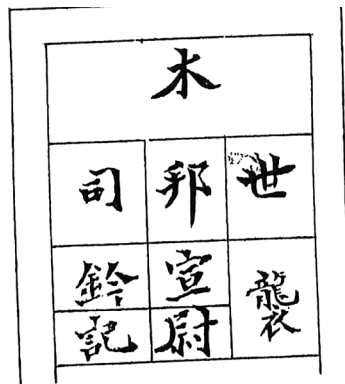 木
世襲
邦宣尉
司鈐記